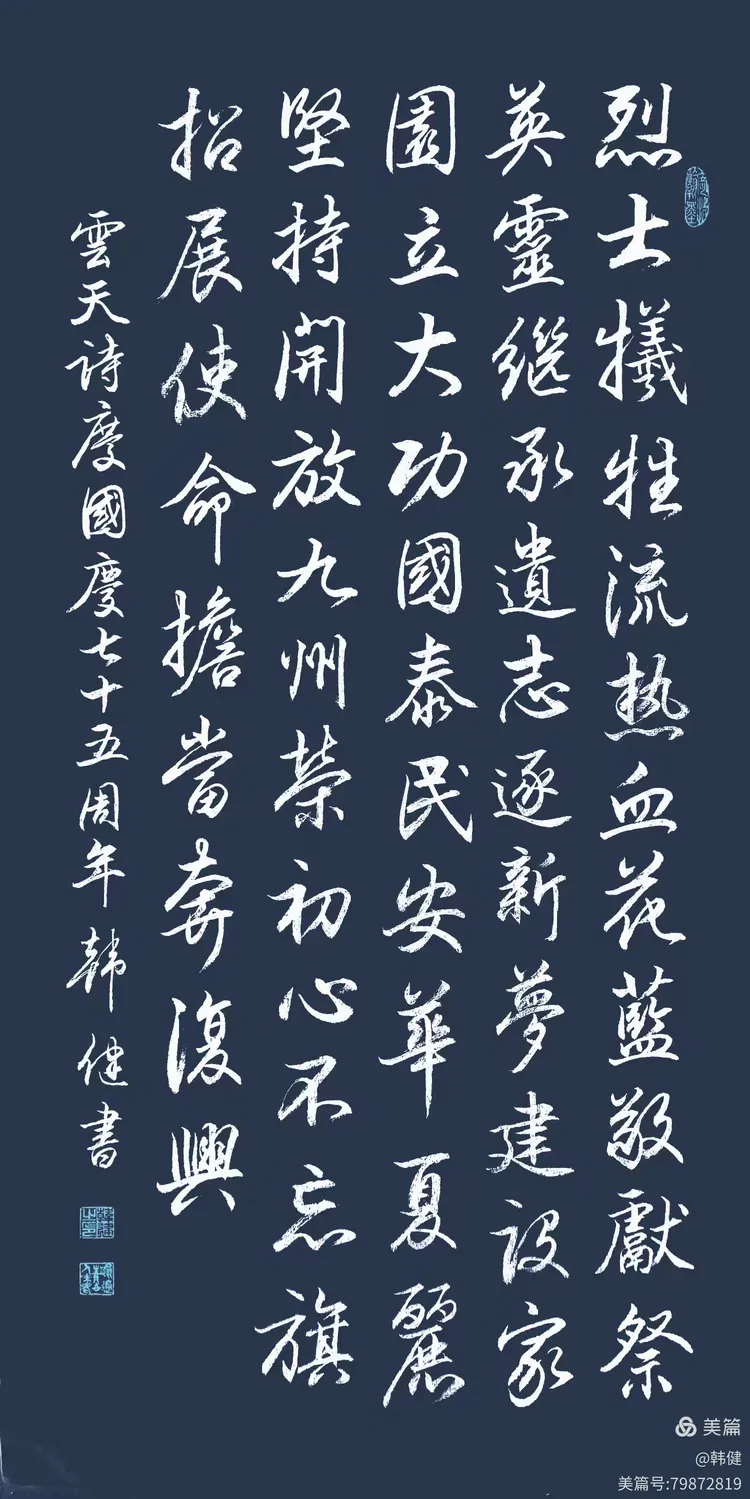 烈士犧牲流热血花藍敬獻祭
英靈继承遺志逐新夢建设家
園立大功國泰民安華夏麗
堅持開放九州榮初心不忘旗
招展使命擔當奔復興
雲天詩慶國慶七十五周年韩健書
美篇
@韩健
美篇号:79872819